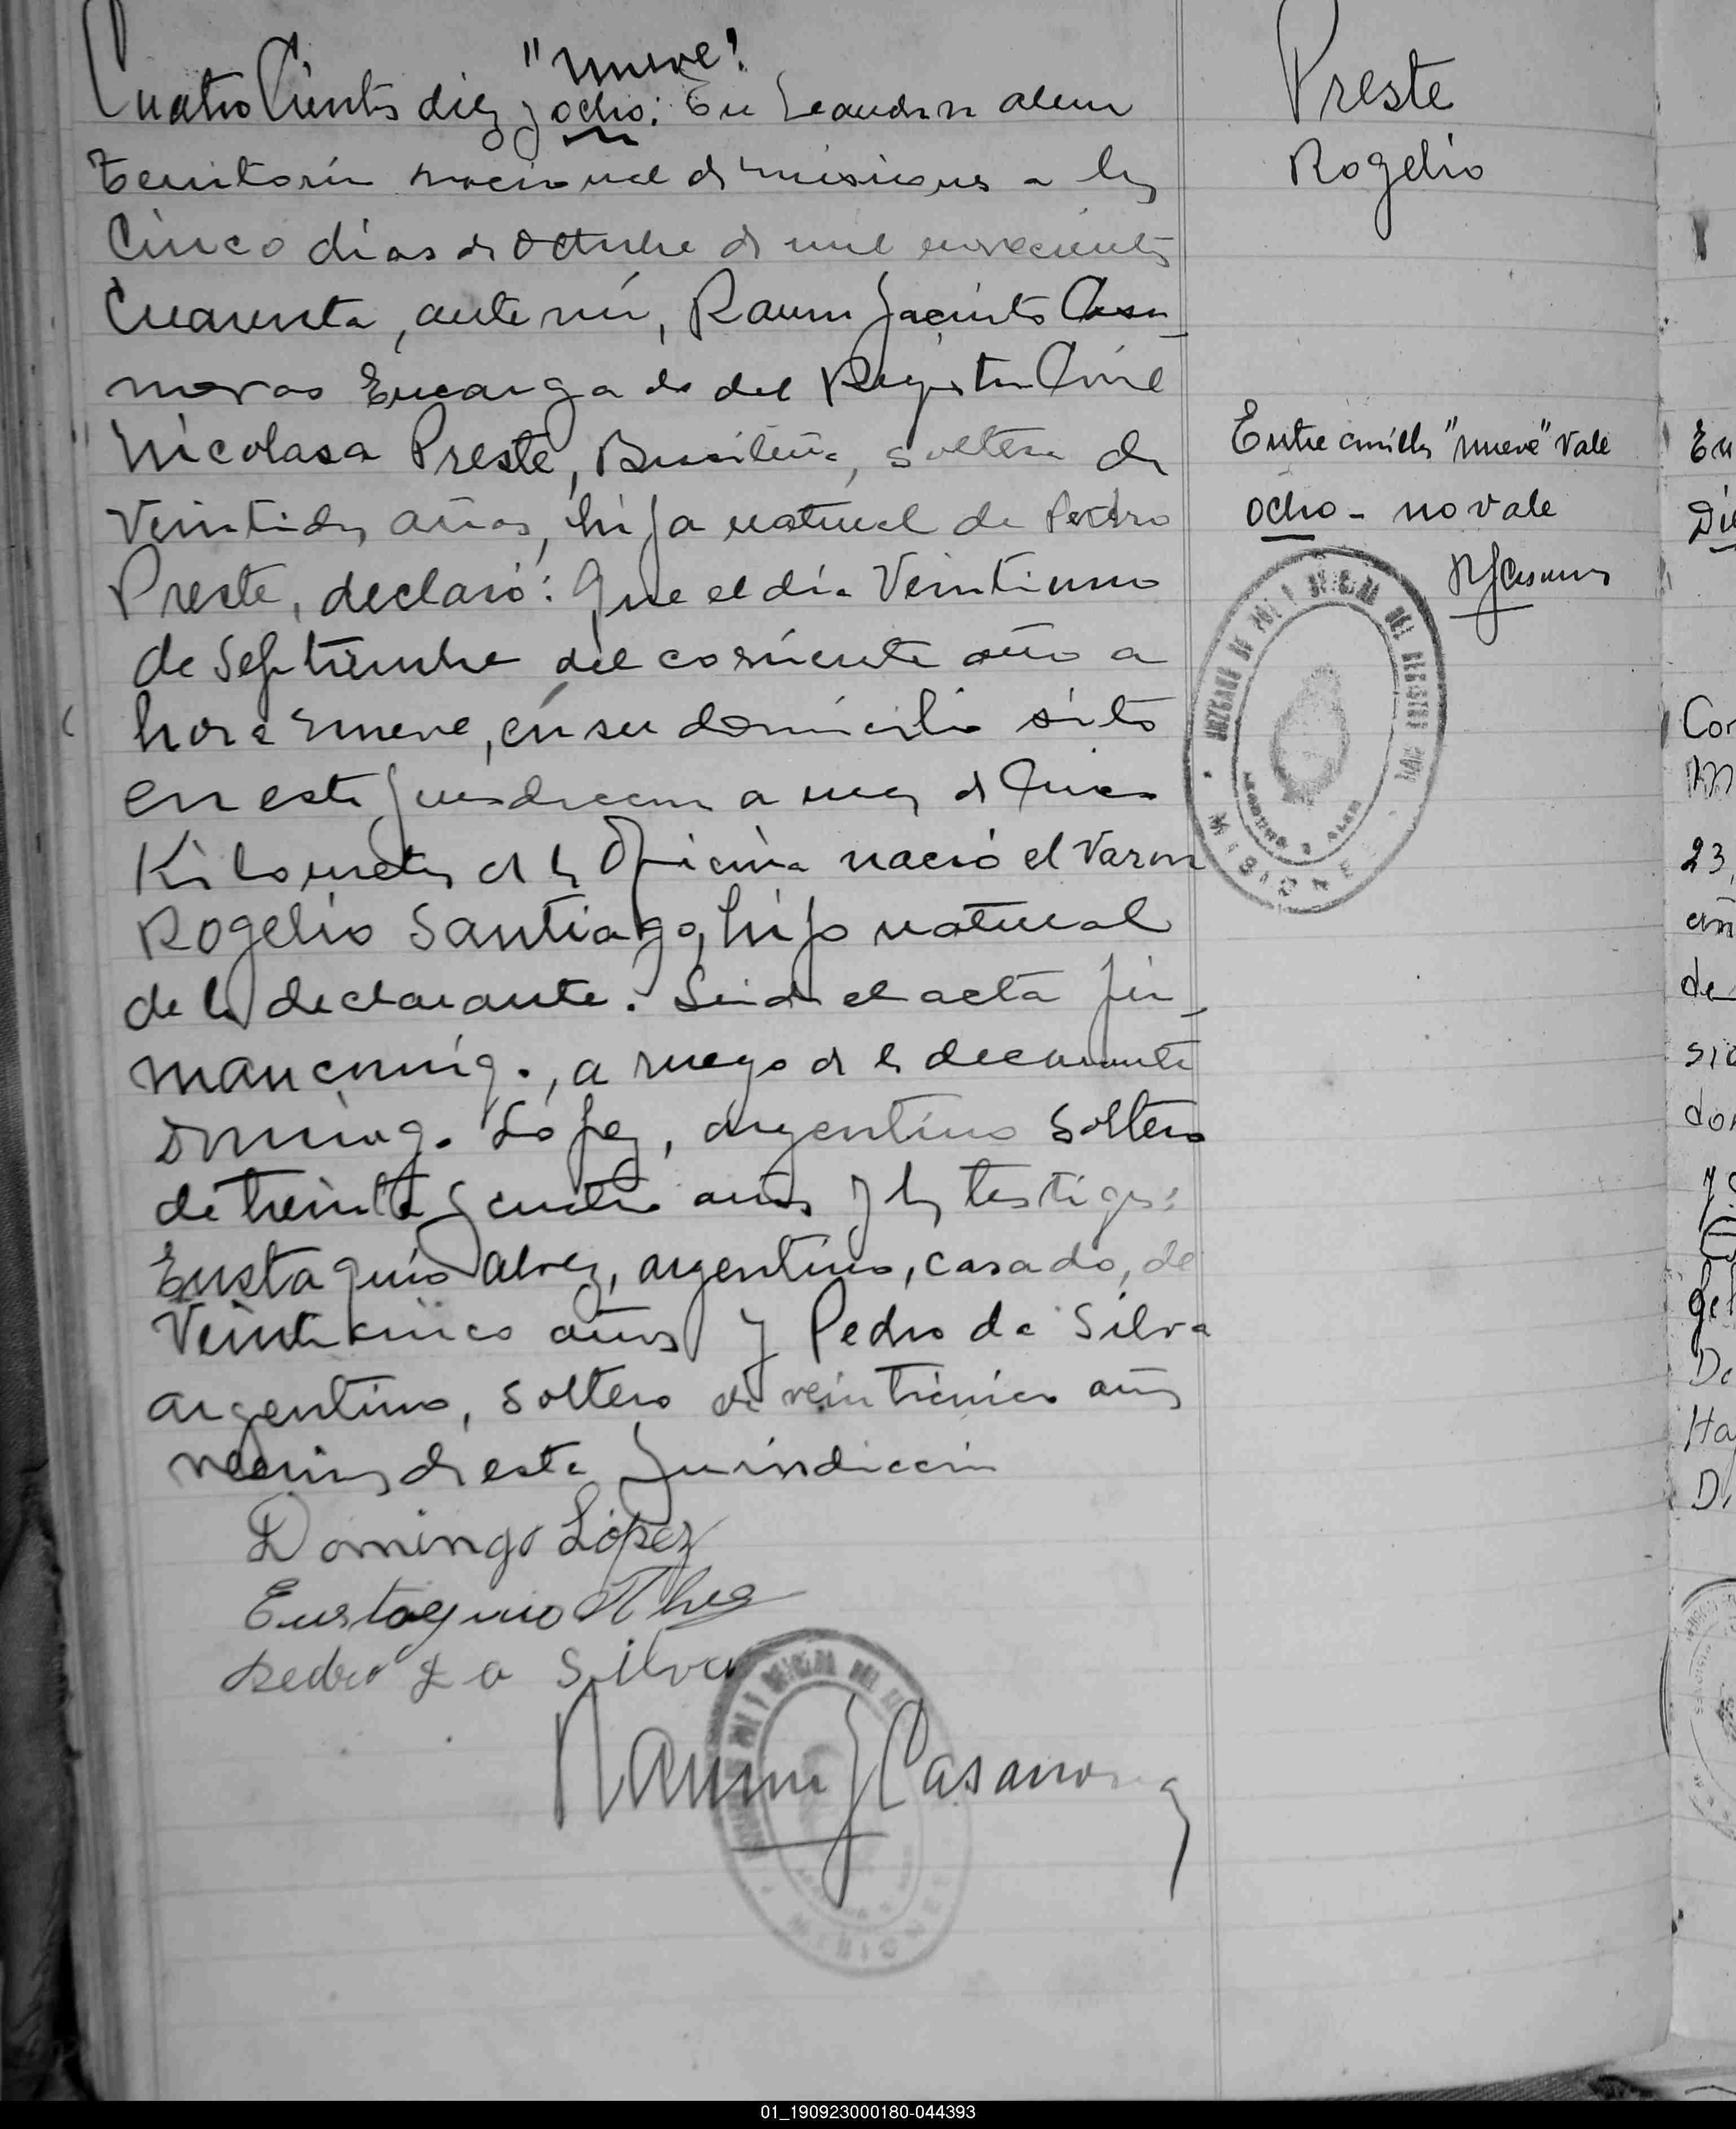 "nueve"
Cuatro Cientos diez y ocho: En Leandro n alem
Territorio nacional de misiones a los
Cinco dias de Octubre de mil novecientos
Cuarenta, ante mi, Ramon Jacinto Casa-
novas Encargado del Registro Civil
Nicolasa Preste, Brasileña, soltera de
Veintidos años, hija natural de Pedro
Preste, declaró: Que el día Veintiuno
de Septiembre del corriente año a
hora nueve, en su domicilio sito
en esta Jurisdiccion a mas de Cinco
Kilometros de la Oficina nació el Varon
Rogelio Santiago, hijo natural
de la declarante. Leida el acta fir-
man conmigo, a ruego de la declarante
Domingo López, argentino soltero
de treinta y cuatro años y los testigos:
Eustaquio alvez, argentino, casado, de
Veinticinco años y Pedro da Silva
argentino, soltero de veinticinco años
vecinos de esta Jurisdiccion
Domingo López
Eustaquio Alves
Pedro Da Silva
Ramon J Casanovas
Preste
Rogelio
Entre comillas "nueve" vale
ocho - no vale
RJCasanovas
JUZGADO DE PAZ Y OFICINA DEL REGISTRO CIVIL
LEANDRO N ALEM
MISIONES
En
Co
23,
de
sic
do
gel
De
Ha
D
01_190923000180-044393